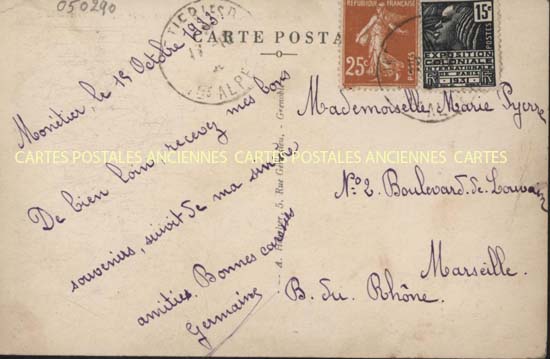 050290
CARTE POSTA
RÉPUBLIQUE FRANÇAISE
25c
15c
EXPOSITION
COLONIALE
INTERNATIONALE
PARIS
1931
Hte ALPES
Monêtier, le 15 Octobre 1933
De bien loin, recevez mes bons
souvenirs, suivit de ma sincère
amitiés. Bonnes caresses
Germaine
Mademoiselle Marie Pyerre
No 2. Boulevard. de. Louvain
Marseille.
B. du. Rhône.
5, Rue
Grenoble
CARTES POSTALES ANCIENNES CARTES POSTALES ANCIENNES CARTES